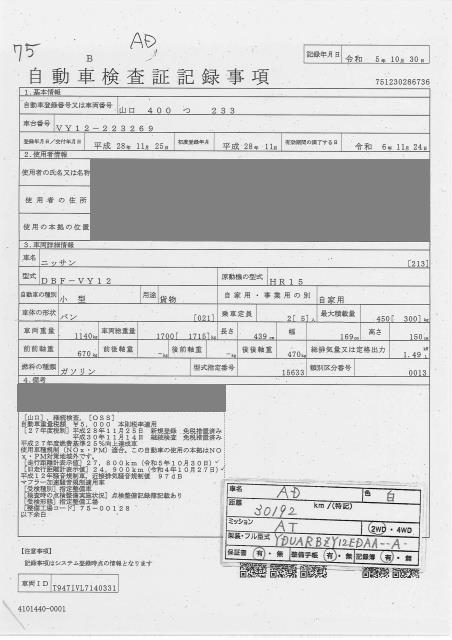 75
AD
B
記録年月日 令和 5年 10月 30日
自動車検査証記録事項
751230286736
1.基本情報
自動車登録番号又は車両番号 山口 400 つ 233
車台番号 VY12-223269
登録年月日/交付年月日 平成 28年 11月 25日 初度登録年月 平成 28年 11月 有効期間の満了する日 令和 6年 11月 24日
2.使用者情報
使用者の氏名又は名称
使用者の住所
使用の本拠の位置
3.車両詳細情報
車名 ニッサン [213]
型式 DBF-VY12 原動機の型式 HR15
自動車の種別 小型 用途 貨物 自家用・事業用の別 自家用
車体の形状 バン [021] 乗車定員 2[ 5]人 最大積載量 450[ 300]kg
車両重量 1140kg 車両総重量 1700[ 1715]kg 長さ 439cm 幅 169cm 高さ 150cm
前前軸重 670kg 前後軸重 -kg 後前軸重 -kg 後後軸重 470kg 総排気量又は定格出力 1.49L
燃料の種類 ガソリン 型式指定番号 15633 類別区分番号 0013
4.備考
[山口], 継続検査, [OSS]
自動車重量税額 ¥5,000 本則税率適用
[27年度税制]平成28年11月25日 新規登録 免税措置済み
平成30年11月14日 継続検査 免税措置済み
平成27年度燃費基準25%向上達成車
使用車種規制(NOx・PM)適合, この自動車の使用の本拠はNO
x・PM対策地域外です。
[走行距離計表示値]27,800km(令和5年10月30日)
[旧走行距離計表示値]24,900km(令和4年10月27日)
平成12年騒音規制車, 近接排気騒音規制値 97dB
マフラー加速騒音規制適用車
[受検種別]指定整備車
[検査時の点検整備実施状況]点検整備記録簿記載あり
[受検形態]指定整備工場
[整備工場コード]75-00128
以下余白
車名 AD 色 白
距離 30192 km/(特記)
ミッション AT 2WD・4WD
架装・フル型式 YDUARBZY12EDAA--A-
保証書 有・無 整備手帳 有・無 記録簿 有・無
[注意事項]
記録事項はシステム登録時点の情報となります
車両ID T947IVL7140331
4101440-0001